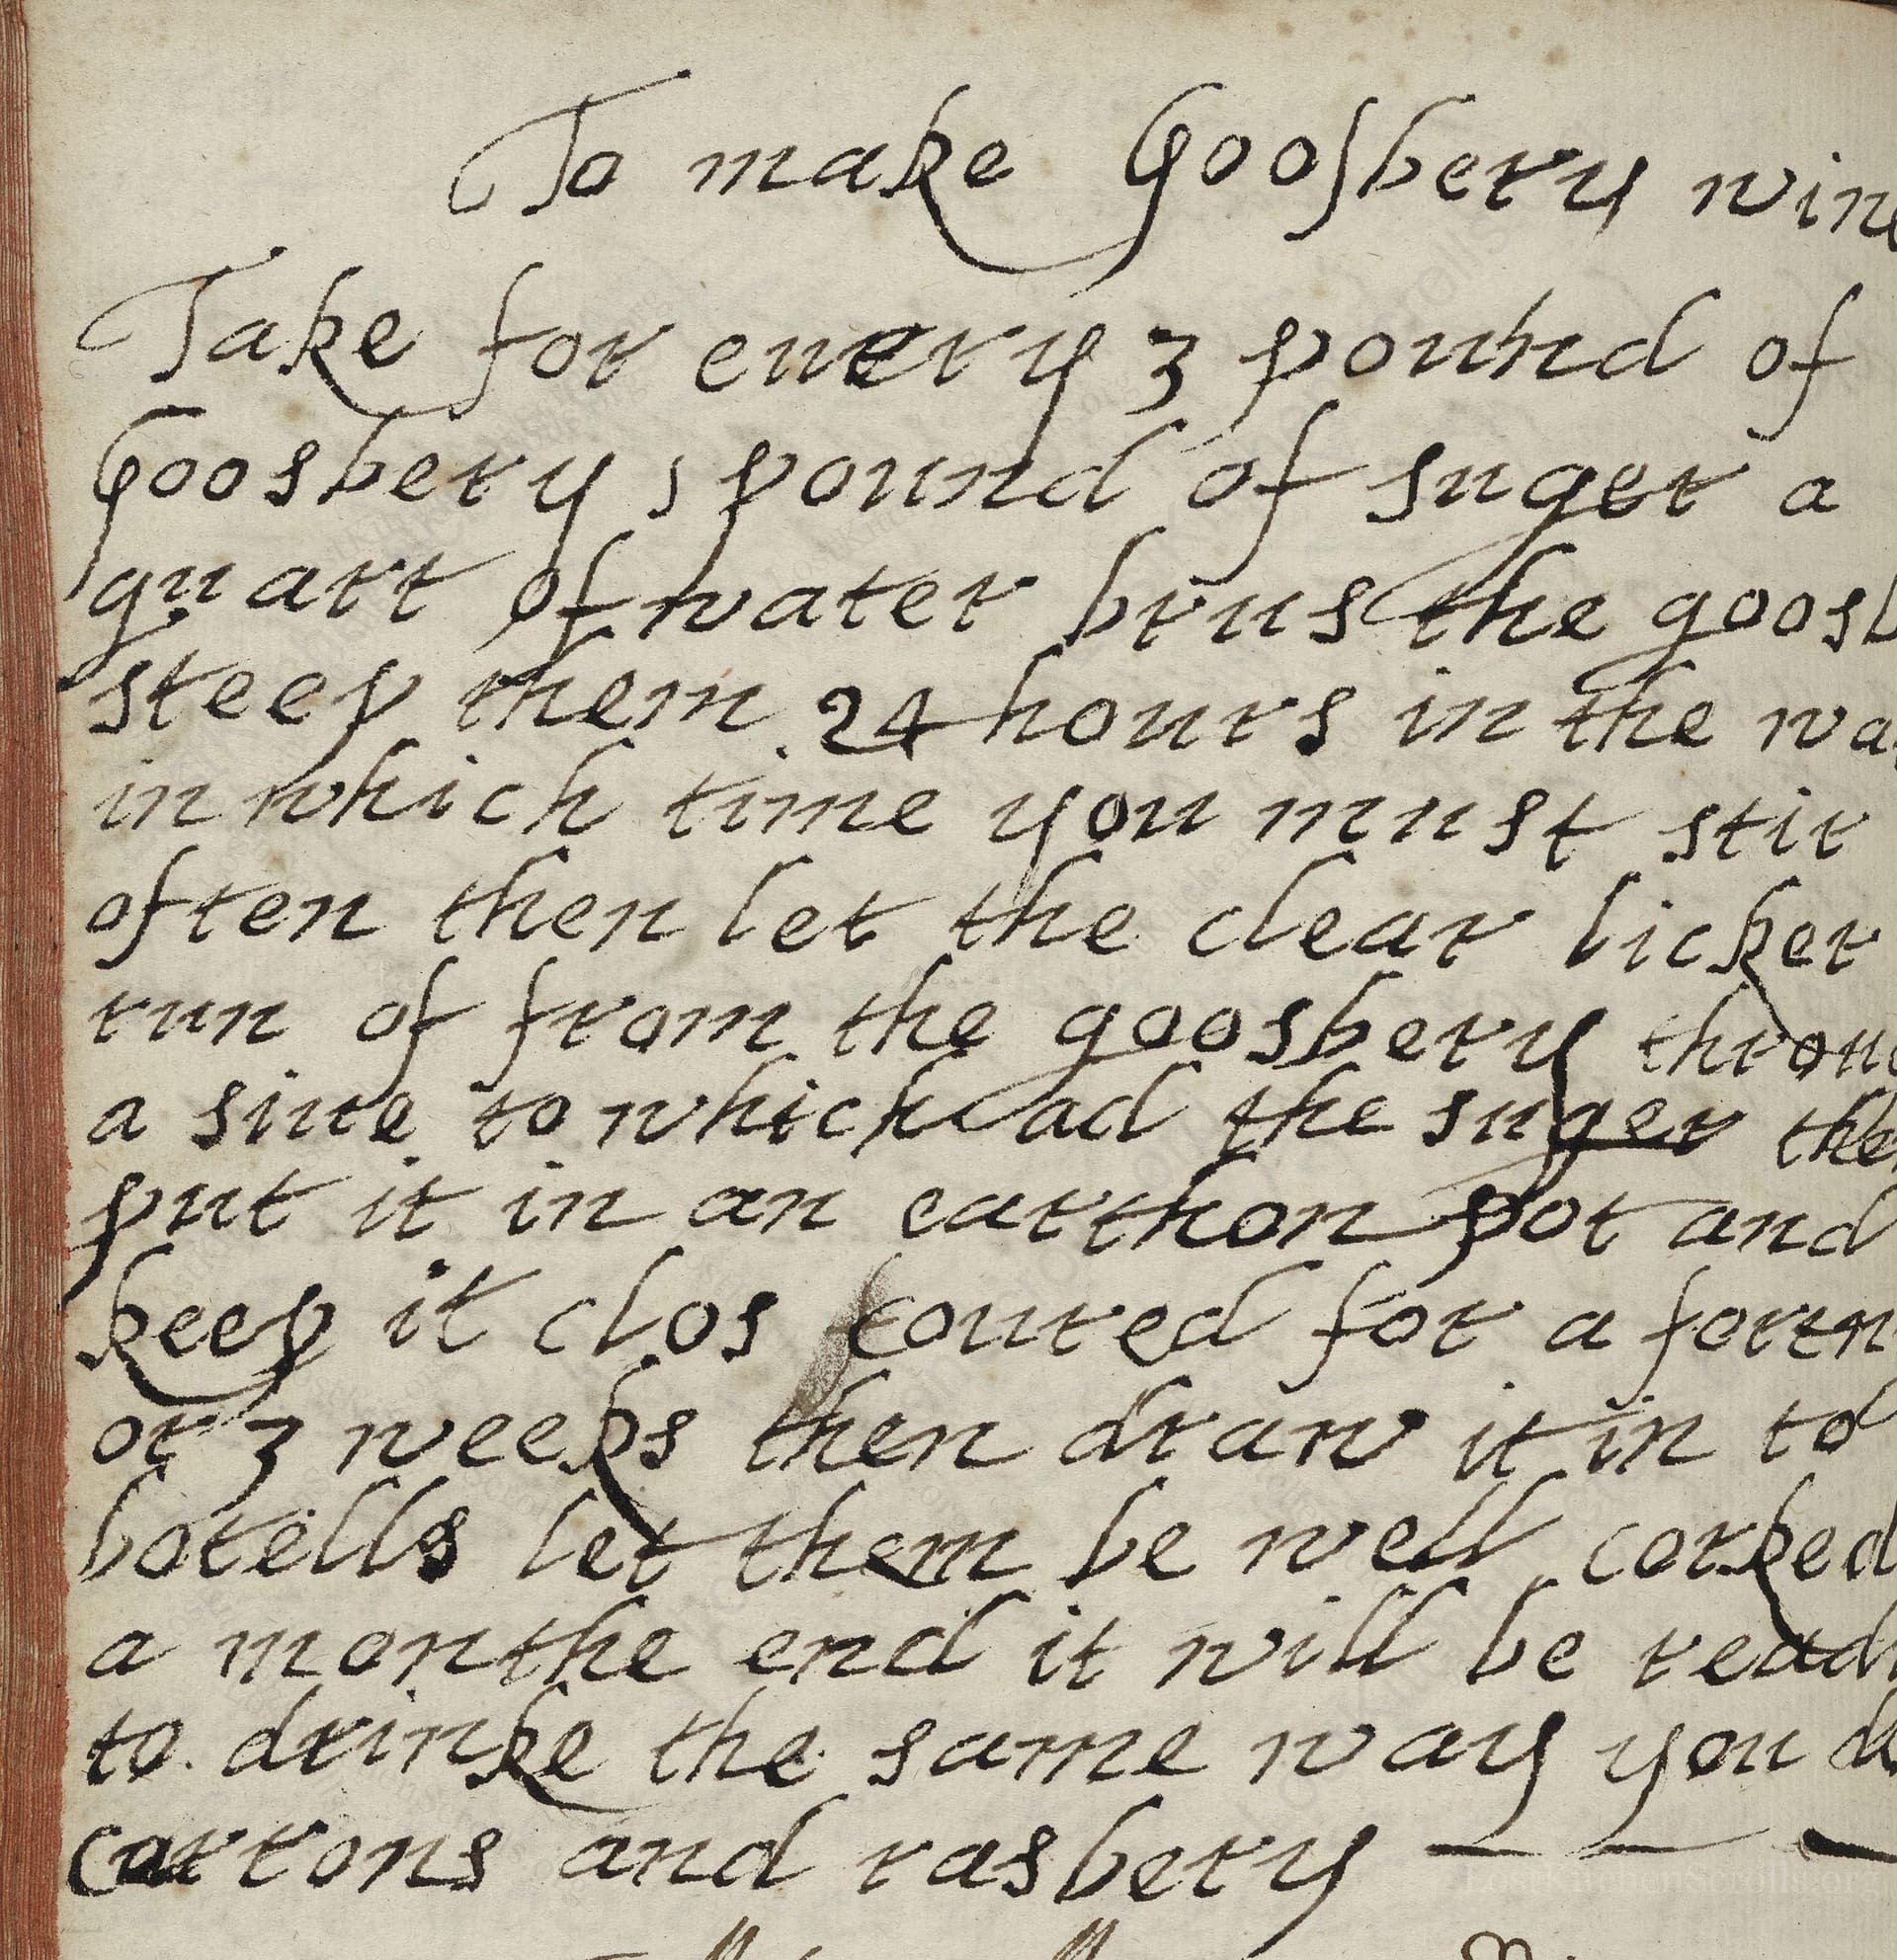 To make Goosbery wine
Take for euery 3 pound of
Goosbery 1 pound of suger a
quart of water brus the goosb
steep them 24 hours in the wa
in which time you must stir
often then let the clear licker
run of from the goosbery throu
a siue to which ad the suger then
put it in an earthon pot and
keep it clos coured for a fortn
or 3 weeks then draw it in to
botells let them be well corked
a monthe end it will be read
to drinke the same way you d
carrons and rasbery